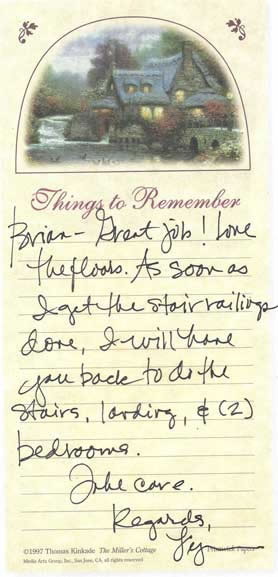 Things to Remember
Brian - Great job! Love
the floors. As soon as
I get the stair railings
done, I will have
you back to do the
stairs, landing, & (2)
bedrooms.
Take care.
Regards,
©1997 Thomas Kinkade The Miller's Cottage
Media Arts Group, Inc., San Jose, CA, all rights reserved